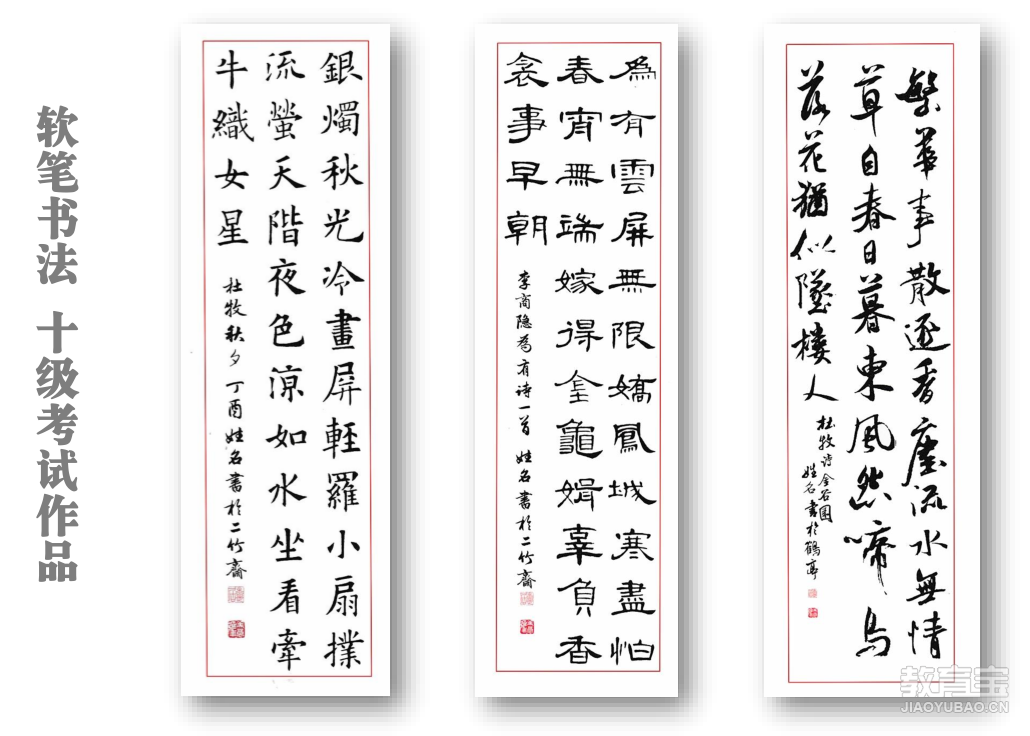 软笔书法 十级考试作品
銀燭秋光冷畫屏輕羅小扇撲
流螢天階夜色涼如水坐看牽
牛織女星
杜牧秋夕 丁酉姓名書於二竹齋
為有雲屏無限嬌鳳城寒盡怕
春宵無端嫁得金龜婿辜負香
衾事早朝
李商隐為有诗一首 姓名書於二竹齋
繁華事散逐香塵流水無情
草自春日暮東風怨啼鳥
落花猶似墜樓人
杜牧诗金谷園
姓名書於鶴亭
教育宝
JIAOYUBAO.CN